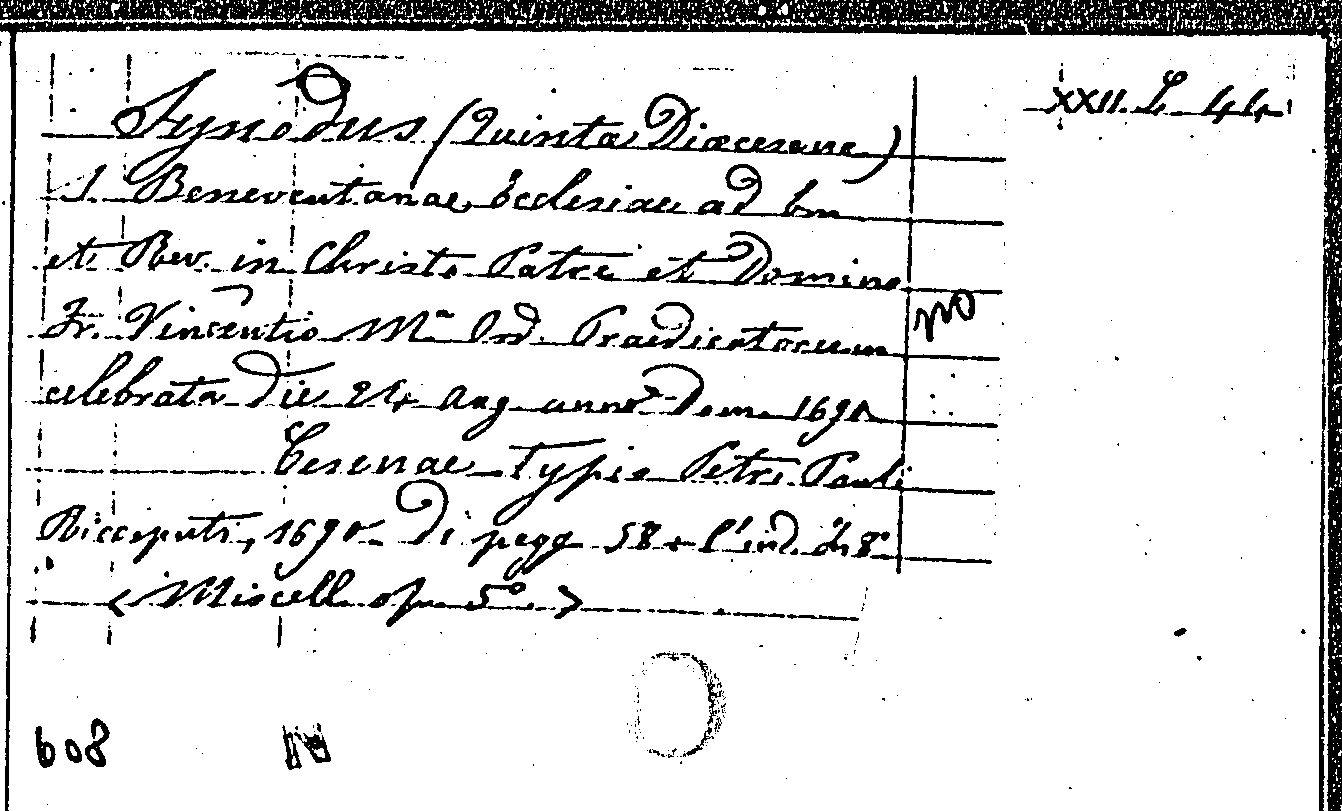 XXII. L. 44
Synodus (Quinta Diœcesane)
S. Beneventanae Ecclesiae ad Em
et Rev. in Christo Patre et Domino
Fr. Vincentio Mª Ord. Praedicatorum
no
celebrata die 24 Aug. anno Dom. 1690
Cesenae Typis Petri Pauli
Ricceputi, 1690 di pagg 58 + l'ind. in 8º
< Miscell. op. 5º >
608 N